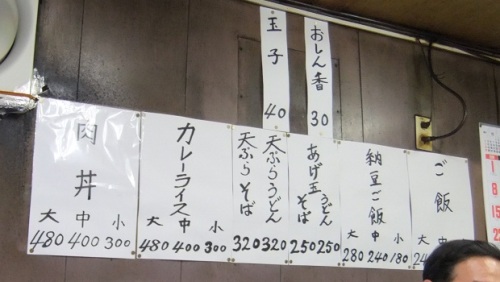 玉子 40
おしん香 30
肉丼
大 中 小
480 400 300
カレーライス
大 中 小
480 400 300
天ぷらうどん 320
天ぷらそば 320
あげ玉うどん 250
そば 250
納豆ご飯
大 中 小
280 240 180
ご飯
大 中 小
1
8
15